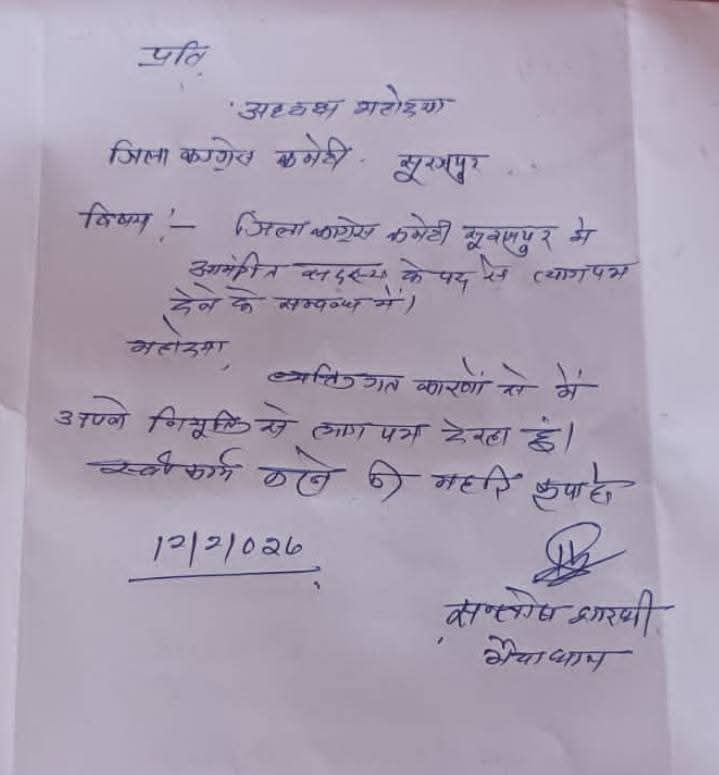 प्रति,
अध्यक्ष महोदया
जिला कांग्रेस कमेटी सूरजपुर
विषय :- जिला कांग्रेस कमेटी सूरजपुर में
आमंत्रित सदस्य के पद से त्यागपत्र
देने के सम्बन्ध में।
महोदया,
व्यक्तिगत कारणों से मैं
अपने नियुक्ति से त्याग पत्र दे रहा हूं।
करने की कृपा हो
12/2/026
सन्तोष सारथी
भैयाथान